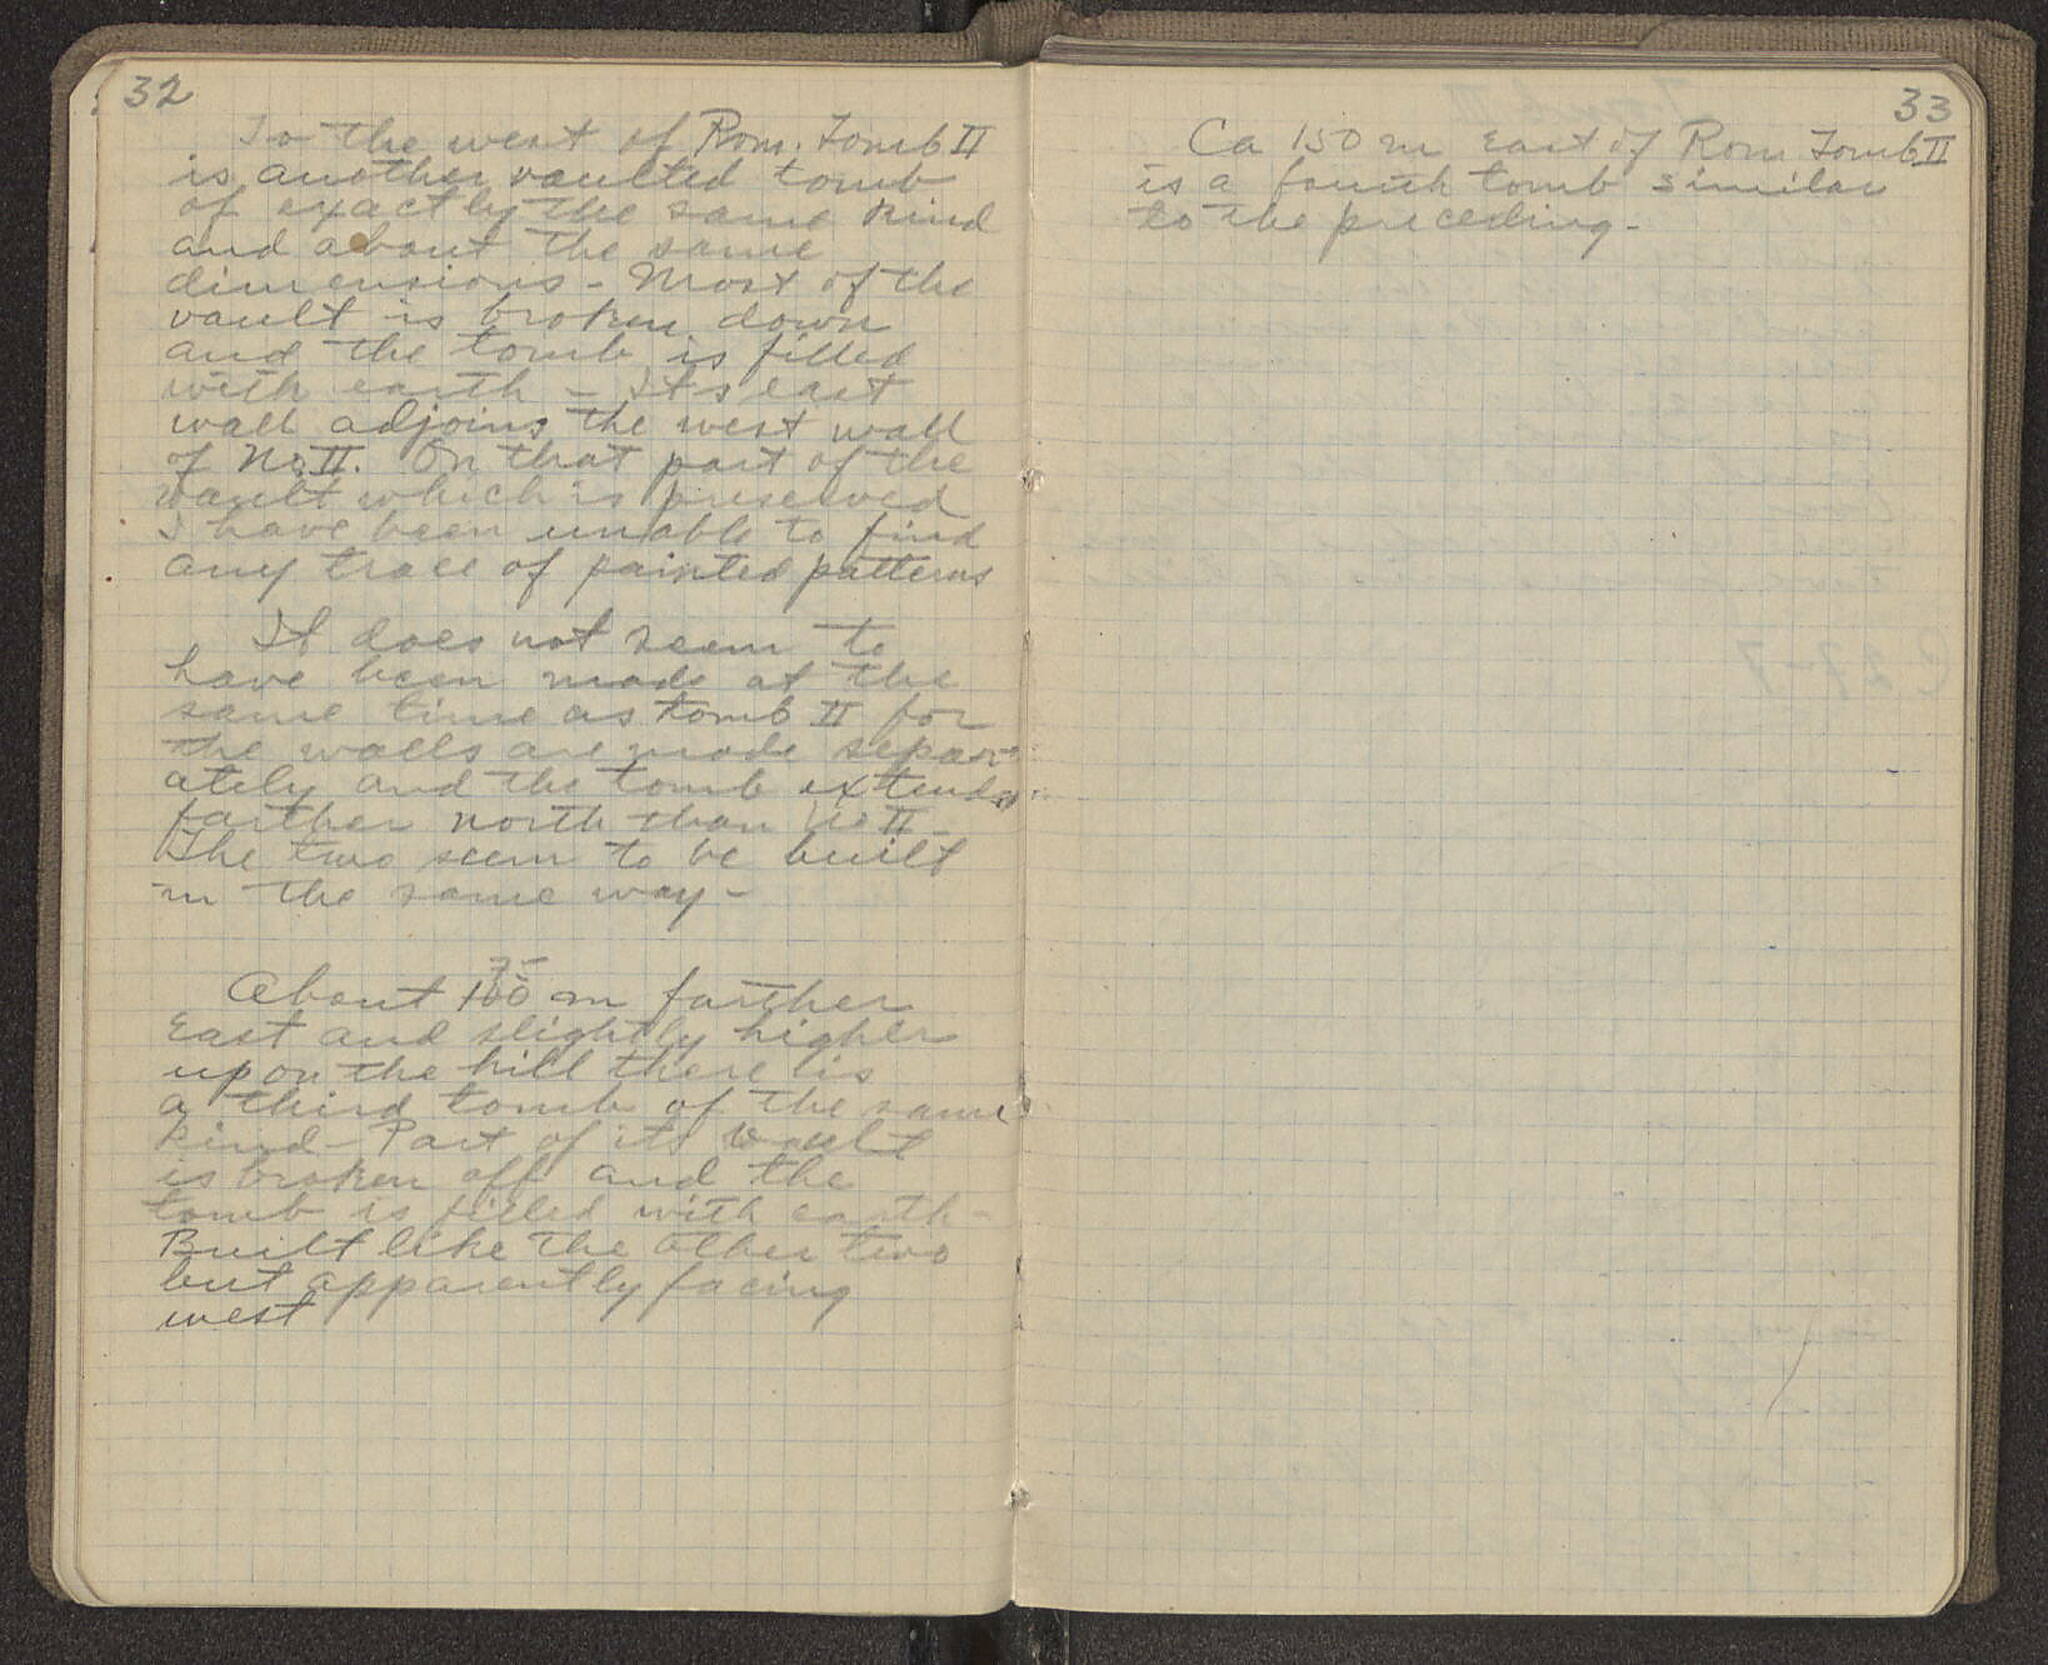 32
To the west of Rom. Tomb II
is another vaulted tomb
of exactly the same kind
and about the same
dimensions - Most of the
vault is broken down
and the tomb is filled
with earth - Its east
wall adjoins the west wall
of No II. On that part of the
vault which is preserved
I have been unable to find
any trace of painted patterns
It does not seem to
have been made at the
same time as tomb II for
the walls are made separ-
ately and the tomb extends
farther north than No II -
The two seem to be built
in the same way -
75
About 100 m farther
East and slightly higher
up on the hill there is
a third tomb of the same
kind - Part of its vault
is broken off and the
tomb is filled with earth -
Built like the other two
but apparently facing
west
33
Ca 150 m east of Rom Tomb II
is a fourth tomb similar
to the preceding -